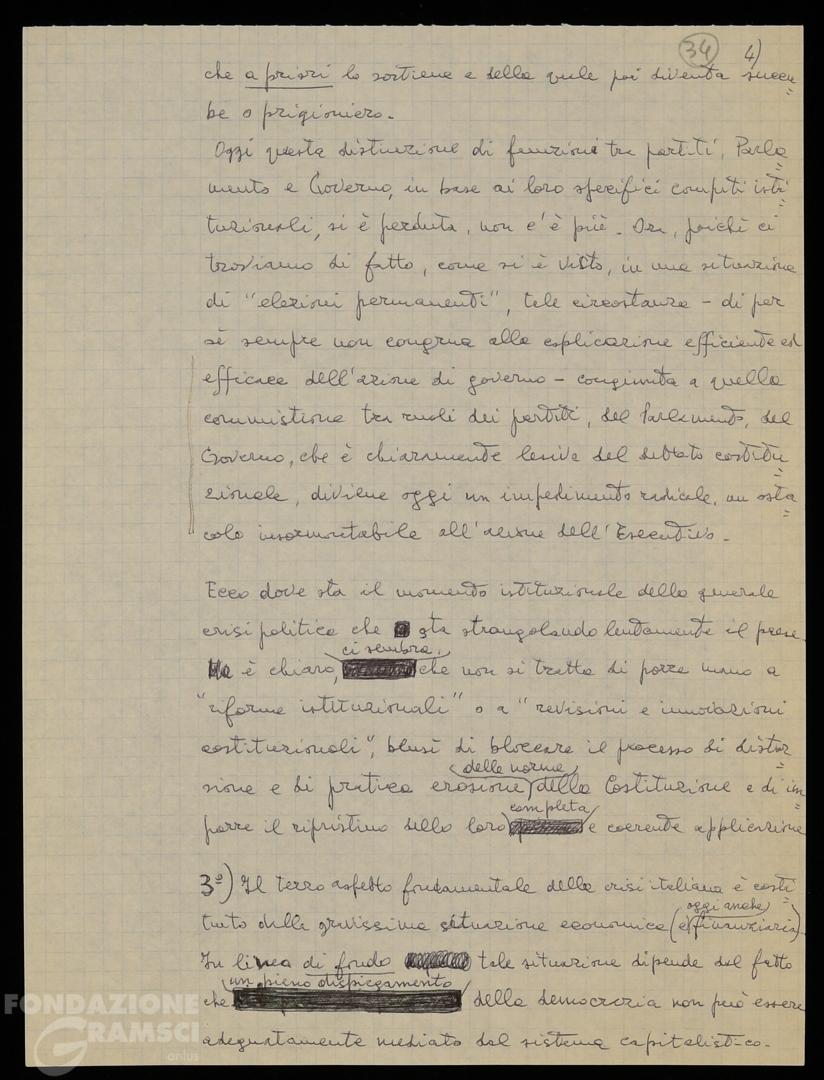 34 4)
che a priori lo sostiene e della quale poi diventa succu=
be o prigioniero.
Oggi questa distinzione di funzioni tra partiti, Parla=
mento e Governo, in base ai loro specifici compiti isti=
tuzionali, si è perduta, non c'è più. Ora, poichè ci
troviamo di fatto, come si è visto, in una situazione
di "elezioni permanenti", tale circostanza - di per
sè sempre non congrua alla esplicazione efficiente ed
efficace dell'azione di governo - congiunta a quella
commistione tra ruoli dei partiti, del Parlamento, del
Governo, che è chiaramente lesiva del dettato costitu=
zionale, diviene oggi un impedimento radicale, un osta=
colo insormontabile all'azione dell'Esecutivo.
Ecco dove sta il momento istituzionale della generale
crisi politica che sta strangolando lentamente il paese.
ci sembra,
Ma è chiaro, che non si tratta di porre mano a
"riforme istituzionali" o a "revisioni e innovazioni
costituzionali", bensì di bloccare il processo di distor=
delle norme
sione e di pratica erosione della Costituzione e di im=
completa
porre il ripristino della loro e coerente applicazione
3º) Il terzo aspetto fondamentale della crisi italiana è costi=
oggi anche
tuito dalla gravissima situazione economica (e finanziaria).
In linea di fondo tale situazione dipende dal fatto
un pieno dispiegamento
che della democrazia non può essere
adeguatamente mediato dal sistema capitalistico.
FONDAZIONE
GRAMSCI
onlus